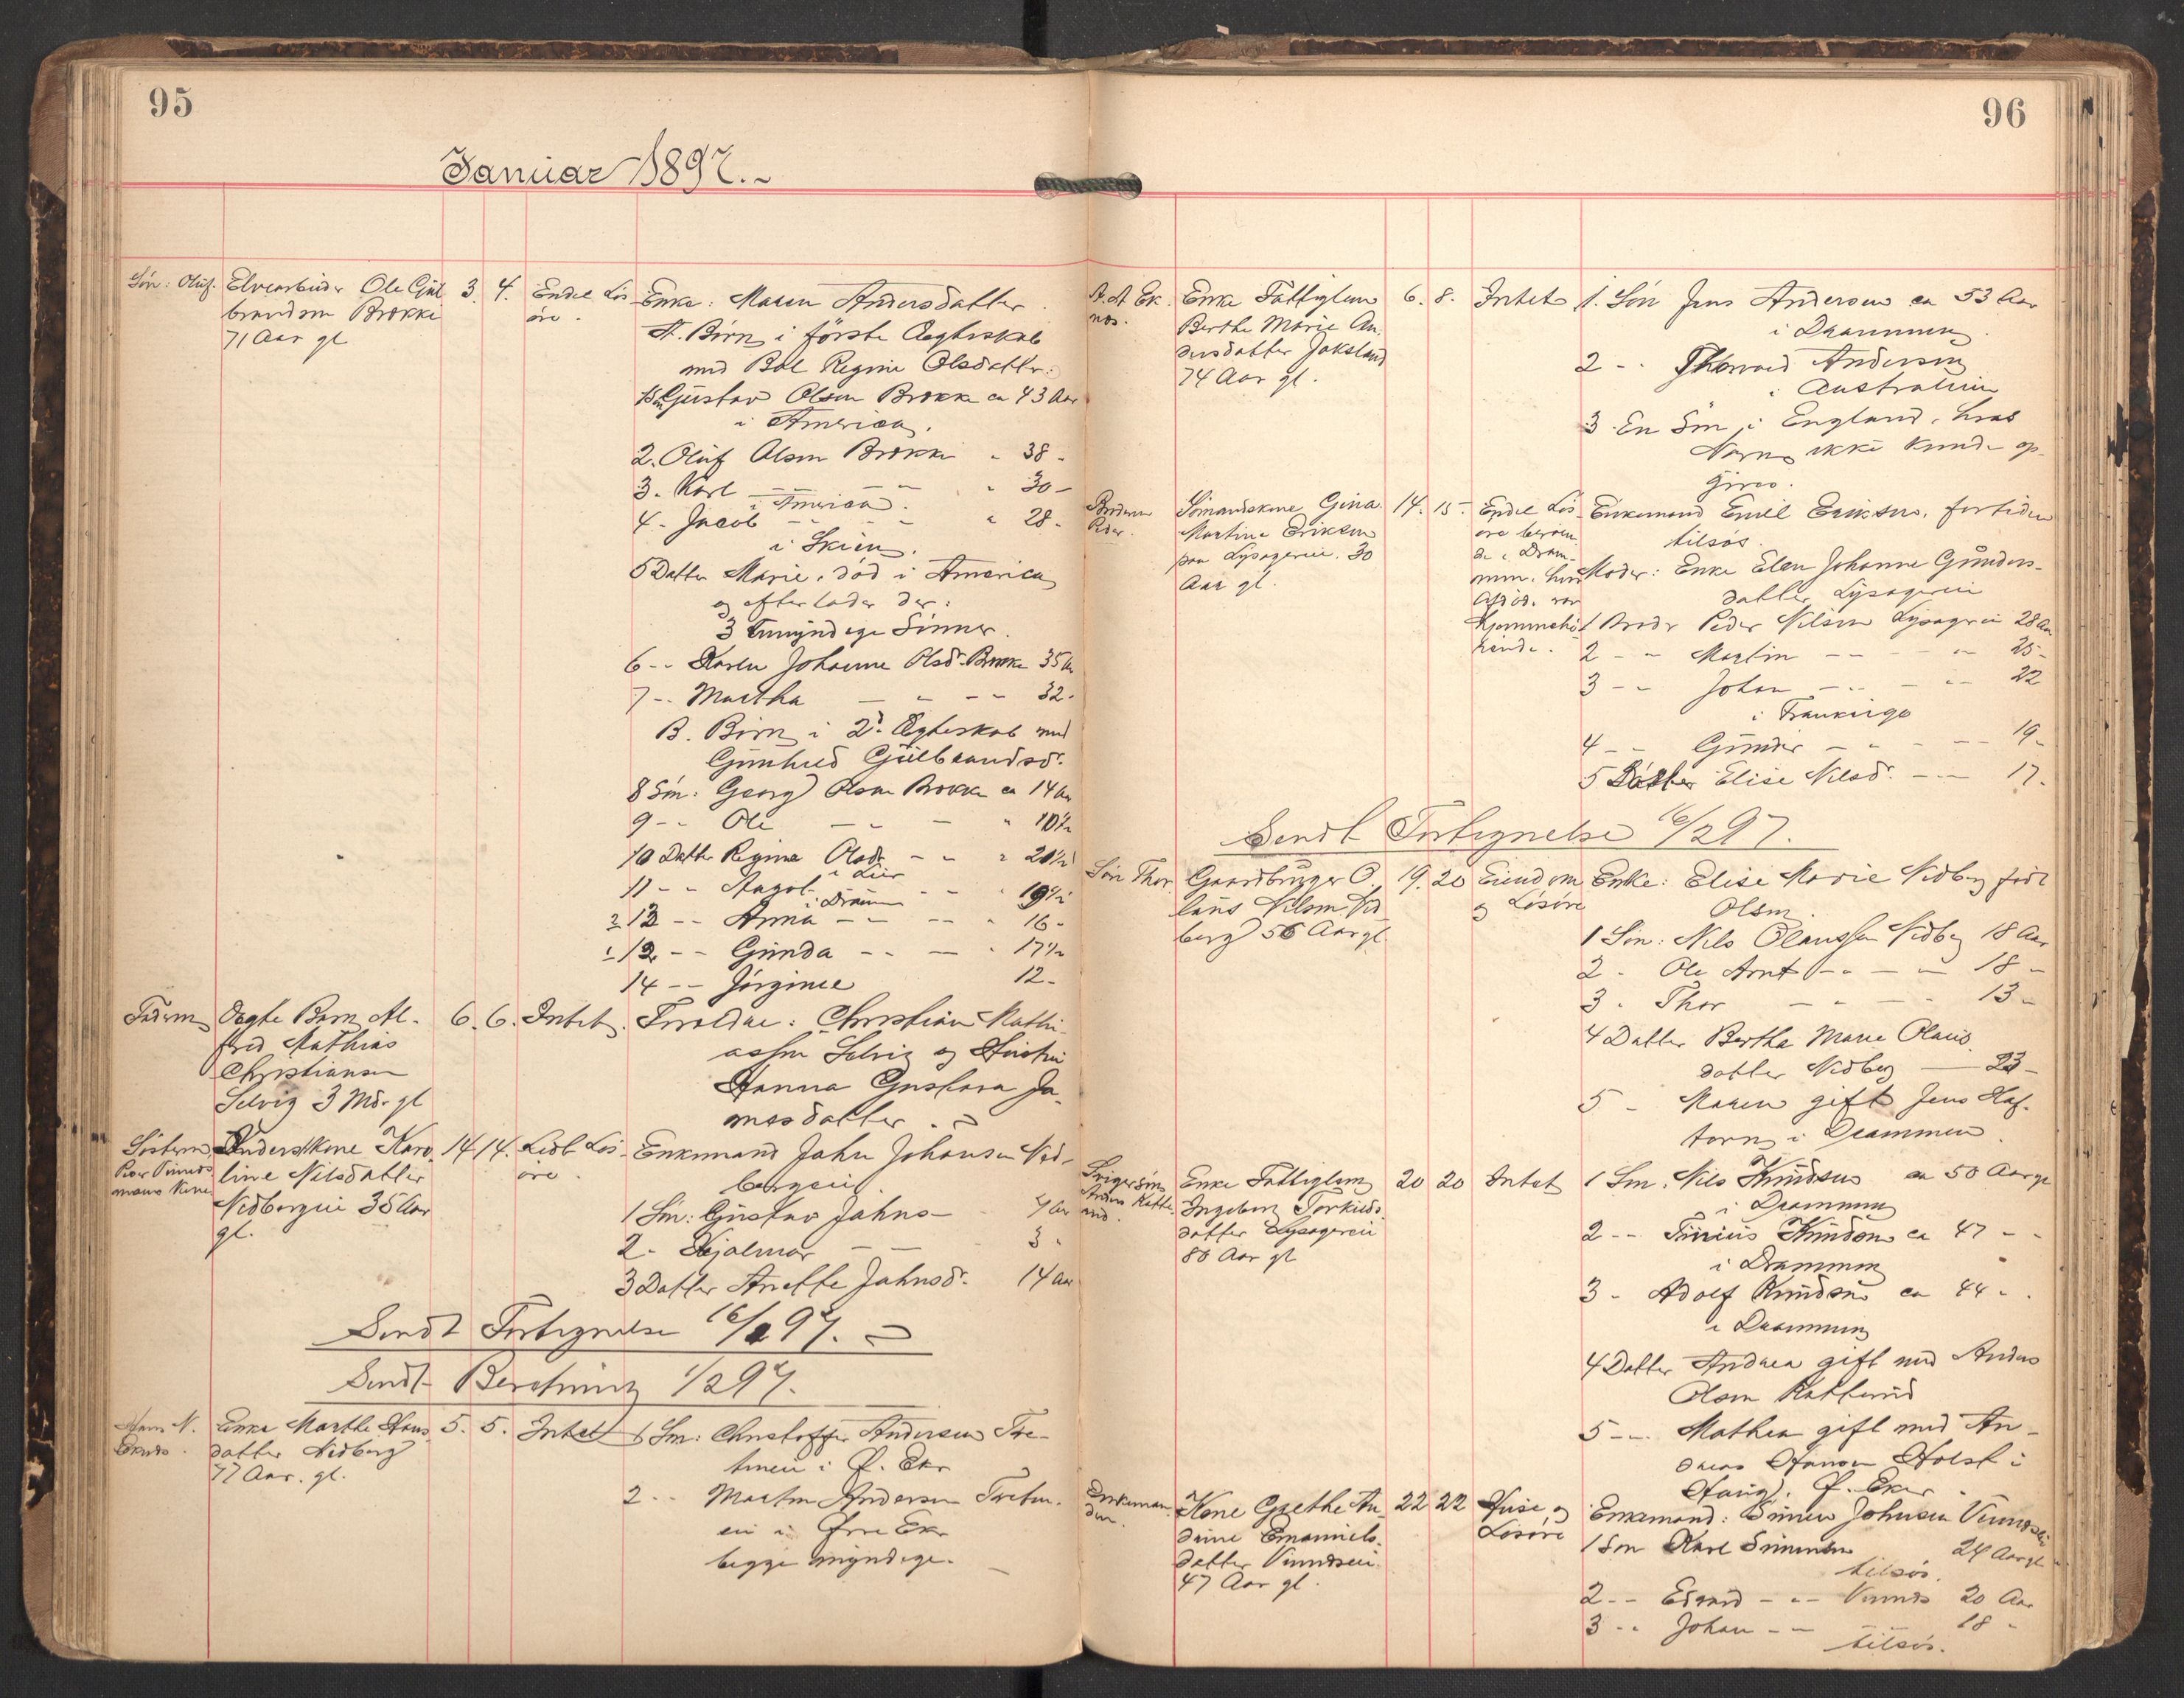 95
Januar 1897.
Sön: Oluf.
Elvearbeider Ole Gul
brandsen Brokke
71 Aar gl
3. 4.
Endel Lös
öre.
Enke: Maren Andersdatter
A. Börn i förste Aegteskab
med Bol Regine Olsdatter:
1 Sön Gustav Olsen Brokke ca 43 Aar
i America.
2. Oluf Olsen Brokke " 38 -
3. Karl — — " 30 -
i America.
4. Jacob - - - " 28 -
i Skien.
5 Datter Marie, död i America
og efterlader der:
3 umyndige Sönner.
6 - - Karen Johanne Olsdr. Brokke 35 Aar
7 - - Martha — - - - 32 -
B. Börn i 2d. Egteskab med
Gunhild Gulbrandsdr.
8 Sön: Georg Olsen Brokke ca 14 Aar
9 - - Ole — - — " 10½
10 Datter Regine Olsdr - - " 20½
i Lier
11 - - Aagot - - - - 19½
i Drammen
2 13 - - Anna - - - - " 16 -
1 12 - - Gunda - - — " 17½
14 - - Jörgine 12 -
Faderen
Aegte Barn Al-
fred Mathias
Christiansen
Selvig 3 Mdr. gl
6. 6.
Intet.
Foreldre: Christian Mathi-
assen Selvig og Hustru
Hanna Gustava Ja-
mesdatter.
Södteren
Enderskone Karo-
line Nilsdatter
Nidbergeie 35 Aar
gl.
14 14.
Lidt Lös-
öre.
Enkemand Jahn Johansen Nid-
bergeie
1 Sön: Gustav Jahns - 7 Aar
2 - Hjalmar — — 3 -
3 Datter Anette Jahnsdr. 14 Aar
Sendt Fortegnelse 16/2 97.
Sendt Beretning 1/2 97.
Hans N.
Ekeren.
Enke Marthe Hans
datter Nidberg
77 Aar. gl.
5. 5.
Intet
1 Sön: Christoffer Andersen Tre-
tineie i Ö. Eker
2 - - Martin Andersen
eie i Övre Eker
begge myndige.
96
Enke Fattiglem
Berthe Marie An-
dersdatter Joksland
74 Aar gl.
6. 8.
Intet
1. Sön Jens Andersen ca 53 Aar
i Drammen
2 - - Thorvald Andersen
i Australien
3. En Sön i England, hvis
Navn ikke kunde op-
gives.
Broderen
Peder.
Sömandskone Gina
Martine Eriksen
paa Lysagereie. 30
Aar gl.
14. 15 -
Endel Lös-
öre beroen-
de i Dram-
men. hvor
Afdöde var
hjemmehö-
rende.
Enkemand Emil Eriksen, fortiden
tilsös.
Moder: Enke Elen Johanne Gunders-
datter Lysagereie
1 Broder Peder Nilsen Lysagereie 28 Aar
2 - - Martin - - - - 25 -
3 - - Johan - - - - - 22
i Frankrige
4 - - Gunder - - - - - 19 -
5 Söster Elise Nilsdr. - - - 17 -
Sendt Fortegnelse 16/2 97.
Sön Thor.
Gaardbruger O-
laus Nilsen Nid-
berg 56 Aar gl.
19. 20
Eiendom
og Lösöre
Enke: Elise Marie Nidberg född
Olsen.
1 Sön: Nils Olaussen Nidberg 18 Aar
2 - Ole Arnt - - - - 18 -
3 - Thor - - - - 13 -
4 Datter Bertha Marie Olaus
datter Nidberg — 23 -
5 - Maren gift Jens Haf-
torn i Drammen.
Svigersön
Anders Katte-
rud.
Enke Fattiglem
Ingeborg Torkilds-
datter Lysagereie
80 Aar gl
20 20
Intet
1 Sön. Nils Knudsen ca 50 Aar gl
i Drammen
2 - - Tinius Knudsen ca 47 - -
i Drammen
3 - Adolf Knudsen ca 44 - -
i Drammen
4 Datter Andrea gift med Anders
Olsen Katterud
5 - - Mathea gift med An-
dreas Hansen Holst i
Haug. Ö. Eker.
Enkeman-
den.
Kone Grethe An-
drine Emanuels-
datter Vinndseie
47 Aar gl.
22 22
Huse og
Lösöre
Enkemand: Simen Johnsen Vinndseie
1 Sön Karl Simensen 24 Aar gl
tilsös.
2 - - Edvard - - - Vinnds 20 Aar
3 - - Johan - - 18 -
tilsös.